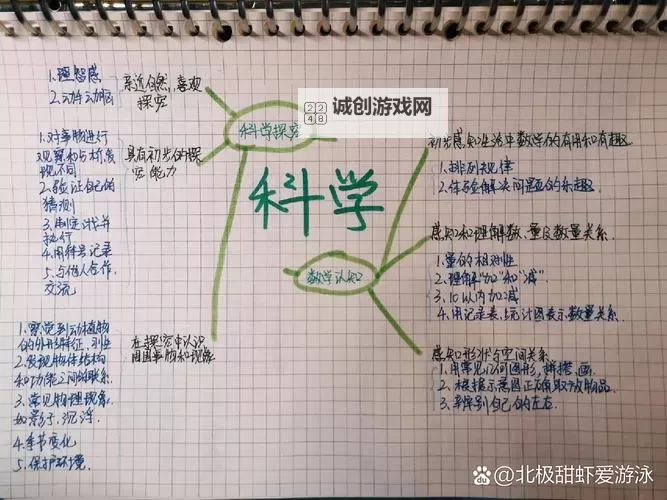 诚创游戏网
2248
科学
科学探究
亲近自然,喜观
探究
1.理智感
2.动手动脑
具有初步的探
究能力
1.对事物进行
观察和分析,发
现不同
2.验证自己的
猜测
3.制定计划并
执行
4.用符号记录
5.与他人合作,
交流
在探究中认识
周围事物和现象
1.察觉到动植物
的外形特征,习性
2.发现物体结构
和功能之间的联系.
3.常见物理现象.
如影子,沉浮.
4.季节变化
5.保护环境.
数学认知
初步感知生活中数学的有用和有趣.
1.排列规律
2.体验解决问题的乐趣.
感知和理解数、量及数量关系.
1.量的相对性
2.理解"加"和"减"
3.10以内加减
4.用记录表、统计图表示数量关系.
感知形状与空间关系.
1.用常见几何图形,拼搭、画
2.根据示意图正确取放物品.
3.辨别自己的左右.
@北极甜虾爱游泳